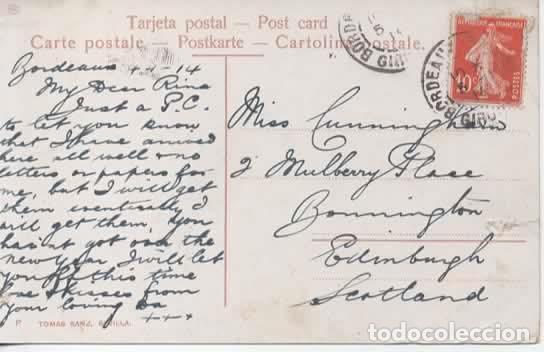 Tarjeta postal - Post card
Carte postale. - Postkarte - Cartolina postale.
BORDEAUX
GIRONDE
REPUBLIQUE FRANÇAISE
10c
POSTES
Bordeaux 4-1-14
My Dear Rina
Just a P.C.
to let you know
that I have arrived
here all well & no
letters or papers for
me, but I will get
them eventually I
will get them, You
has it got over the
new year. I will let
you off this time
love & kisses from
Your loving Da
+++
Miss Cunningham
2 Mulberry Place
Bonnington
Edinburgh
Scotland
P. TOMAS SANZ, SEVILLA.
todocoleccion